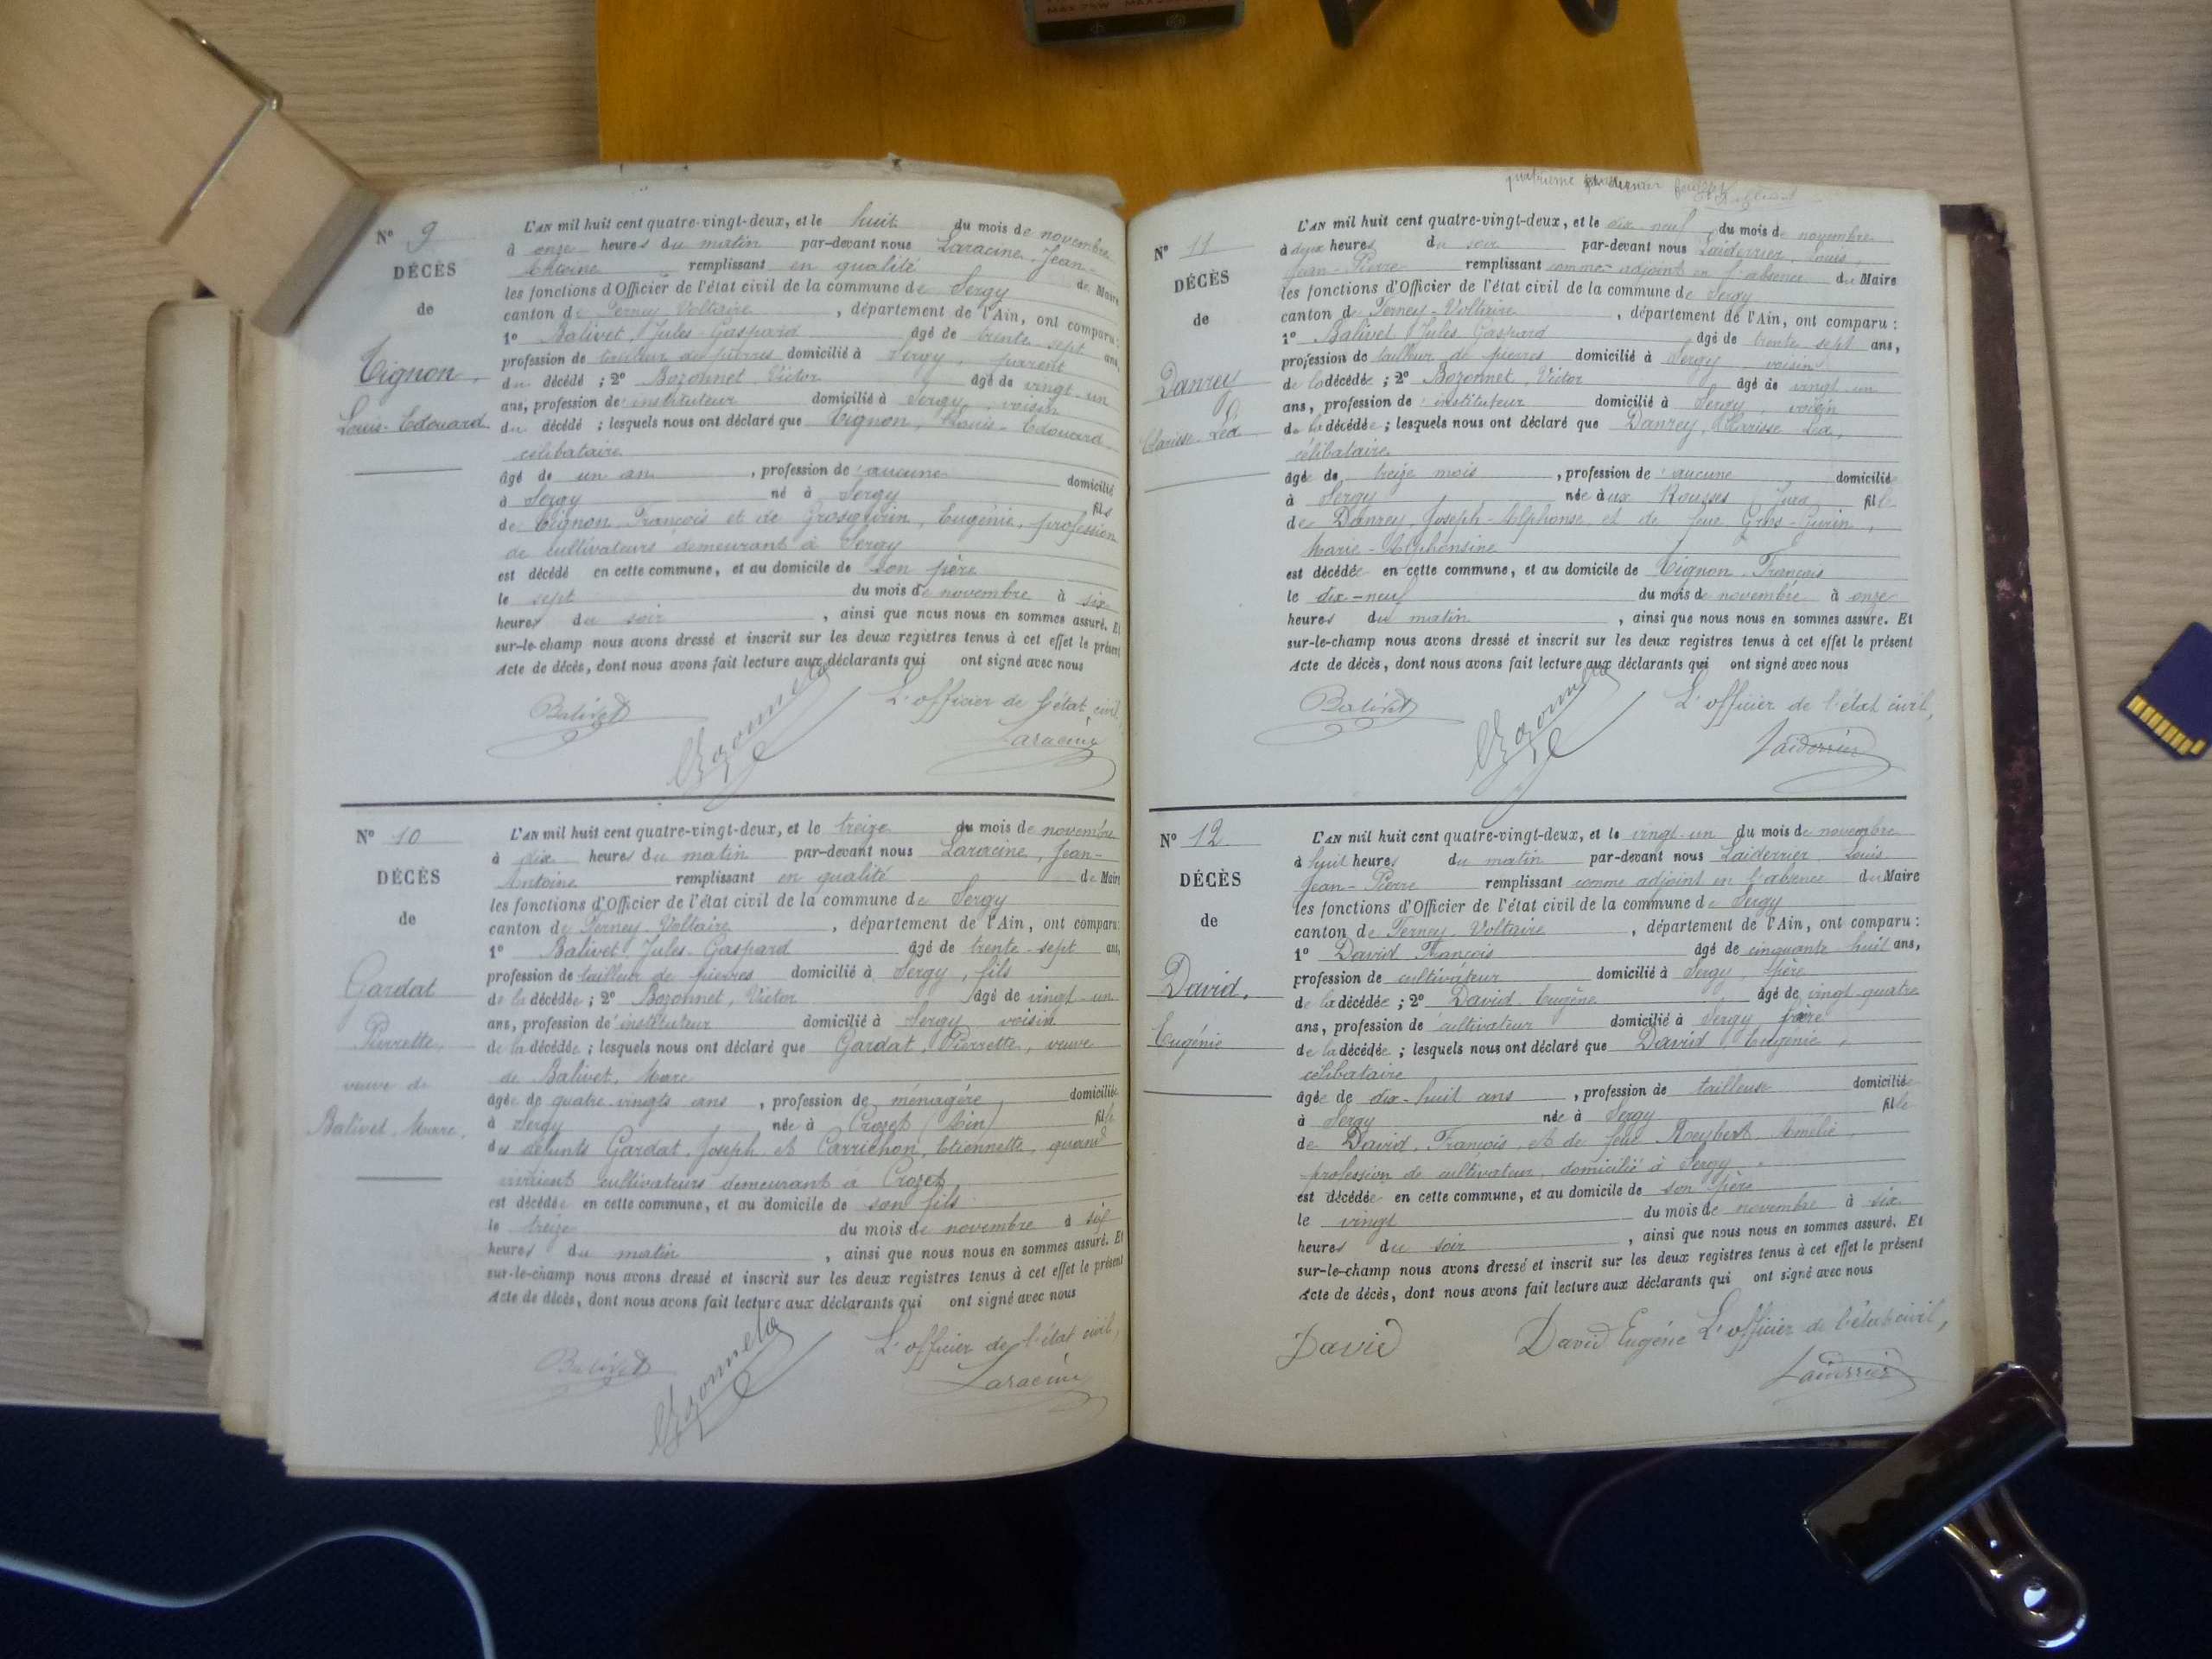 N° 9
DÉCÈS
de
Tignon,
Louis-Edouard
L'AN mil huit cent quatre-vingt-deux, et le huit du mois de novembre
à onze heures du matin par-devant nous Laracine, Jean-
Antoine remplissant en qualité de Maire
les fonctions d'Officier de l'état civil de la commune de Sergy
canton de Ferney-Voltaire, département de l'Ain, ont comparu :
1° Balivet, Jules-Gaspard âgé de trente-sept ans,
profession de tailleur de pierres domicilié à Sergy, parent
du décédé ; 2° Bozonnet, Victor âgé de vingt-un
ans, profession de instituteur domicilié à Sergy, voisin
du décédé ; lesquels nous ont déclaré que Tignon, Louis-Edouard
célibataire
âgé de un an, profession de aucune domicilié
à Sergy né à Sergy fils
de Tignon, François et de Grosgurin, Eugénie, profession
de cultivateurs demeurant à Sergy
est décédé en cette commune, et au domicile de son père
le sept du mois de novembre à six
heures du soir, ainsi que nous nous en sommes assuré. Et
sur-le-champ nous avons dressé et inscrit sur les deux registres tenus à cet effet le présent
Acte de décès, dont nous avons fait lecture aux déclarants qui ont signé avec nous
Balivet Bozonnet L'officier de l'état civil,
Laracine
N° 10
DÉCÈS
de
Gardat
Pierrette,
veuve de
Balivet, Marc.
L'AN mil huit cent quatre-vingt-deux, et le treize du mois de novembre
à dix heures du matin par-devant nous Laracine, Jean-
Antoine remplissant en qualité de Maire
les fonctions d'Officier de l'état civil de la commune de Sergy
canton de Ferney-Voltaire, département de l'Ain, ont comparu :
1° Balivet, Jules-Gaspard âgé de trente-sept ans,
profession de tailleur de pierres domicilié à Sergy, fils
de la décédée ; 2° Bozonnet, Victor âgé de vingt-un
ans, profession de instituteur domicilié à Sergy voisin
de la décédée ; lesquels nous ont déclaré que Gardat, Pierrette, veuve
de Balivet, Marc
âgée de quatre-vingts ans, profession de ménagère, domiciliée
à Sergy née à Crozet (Ain) fille
des défunts Gardat, Joseph et Carrichon, Etiennette, quand
vivaient cultivateurs demeurant à Crozet
est décédée en cette commune, et au domicile de son fils
le treize du mois de novembre à six
heures du matin, ainsi que nous nous en sommes assuré. Et
sur-le-champ nous avons dressé et inscrit sur les deux registres tenus à cet effet le présent
Acte de décès, dont nous avons fait lecture aux déclarants qui ont signé avec nous
Balivet Bozonnet L'officier de l'état civil,
Laracine
quatrième et dernier
N° 11
DÉCÈS
de
Danrey
Clarisse-Léa
L'AN mil huit cent quatre-vingt-deux, et le dix-neuf du mois de novembre
à deux heures du soir par-devant nous Laiderrier, Louis,
Jean-Pierre remplissant comme adjoint en l'absence du Maire
les fonctions d'Officier de l'état civil de la commune de Sergy
canton de Ferney-Voltaire, département de l'Ain, ont comparu :
1° Balivet, Jules-Gaspard âgé de trente-sept ans,
profession de tailleur de pierres domicilié à Sergy, voisin
de la décédée ; 2° Bozonnet, Victor âgé de vingt-un
ans, profession de instituteur domicilié à Sergy, voisin
de la décédée ; lesquels nous ont déclaré que Danrey, Clarisse-Léa,
célibataire
âgé de treize mois, profession de aucune domicilié
à Sergy née aux Rousses (Jura) fille
de Danrey, Joseph-Alphonse et de feue Gros-Gurin,
Marie-Alphonsine
est décédée en cette commune, et au domicile de Tignon, François
le dix-neuf du mois de novembre à onze
heures du matin, ainsi que nous nous en sommes assuré. Et
sur-le-champ nous avons dressé et inscrit sur les deux registres tenus à cet effet le présent
Acte de décès, dont nous avons fait lecture aux déclarants qui ont signé avec nous
Balivet Bozonnet L'officier de l'état civil,
Laiderrier
N° 12
DÉCÈS
de
David,
Eugénie
L'AN mil huit cent quatre-vingt-deux, et le vingt-un du mois de novembre
à huit heures du matin par-devant nous Laiderrier, Louis
Jean-Pierre remplissant comme adjoint en l'absence du Maire
les fonctions d'Officier de l'état civil de la commune de Sergy
canton de Ferney-Voltaire, département de l'Ain, ont comparu :
1° David, François âgé de cinquante-huit ans,
profession de cultivateur domicilié à Sergy, père
de la décédée ; 2° David, Eugène âgé de vingt-quatre
ans, profession de cultivateur domicilié à Sergy frère
de la décédée ; lesquels nous ont déclaré que David, Eugénie,
célibataire
âgée de dix-huit ans, profession de tailleuse domiciliée
à Sergy née à Sergy fille
de David, François, et de feue Reybert, Amélie
profession de cultivateur, domicilié à Sergy
est décédée en cette commune, et au domicile de son père
le vingt du mois de novembre à six
heures du soir, ainsi que nous nous en sommes assuré. Et
sur-le-champ nous avons dressé et inscrit sur les deux registres tenus à cet effet le présent
Acte de décès, dont nous avons fait lecture aux déclarants qui ont signé avec nous
David David Eugène L'officier de l'état civil,
Laiderrier